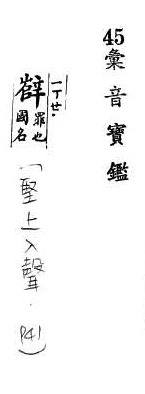 45彙音寶鑑
一丁ㄝ.
辥罪也國名
(堅上入聲.P41)